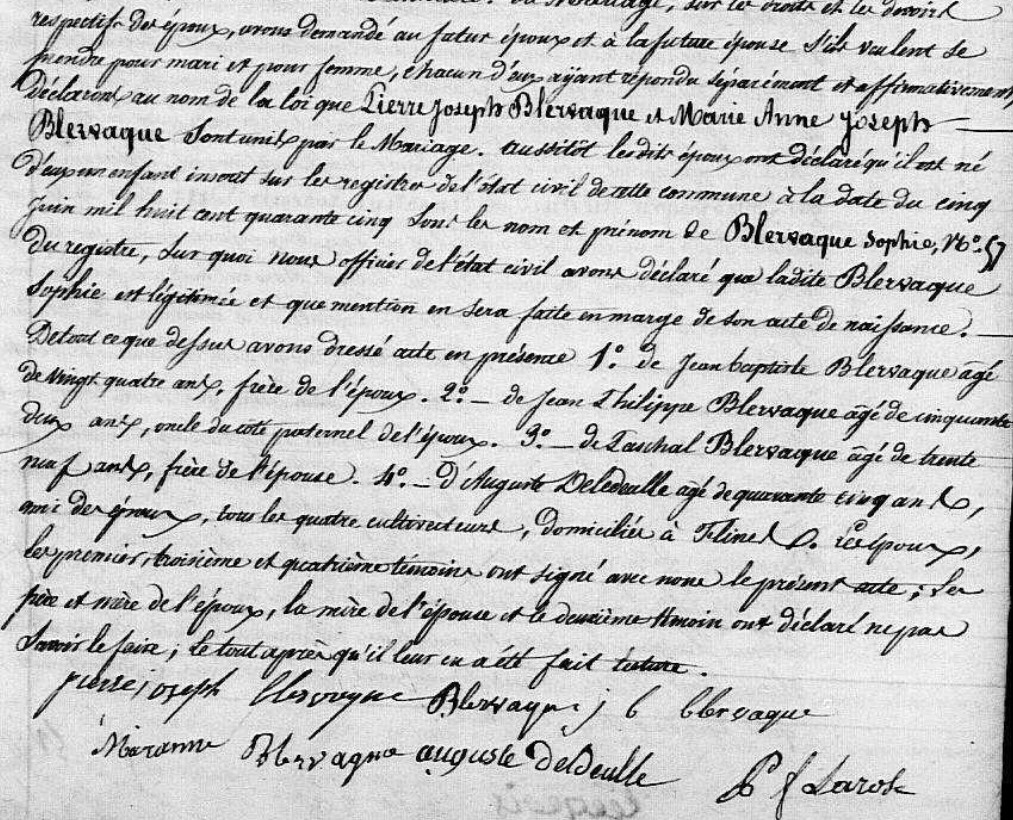 du Mariage, sur les droits et les devoirs
respectifs des époux, avons demandé au futur époux et à la future épouse s'ils veulent se
prendre pour mari et pour femme, chacun d'eux ayant répondu séparément et affirmativement,
Déclarons au nom de la loi que Pierre Joseph Blervaque et Marie Anne Joseph
Blervaque sont unis par le Mariage. aussitôt lesdits époux ont déclaré qu'il est né
d'eux un enfant inscrit sur les registres de l'état civil de cette commune à la date du cinq
Juin mil huit cent quarante cinq sous les nom et prénom de Blervaque Sophie, No. 57
du registre, sur quoi nous officier de l'état civil avons déclaré que ladite Blervaque
Sophie est légitimée et que mention en sera faite en marge de son acte de naissance.
De tout ce que dessus avons dressé acte en présence 1o. de Jean baptiste Blervaque âgé
de vingt quatre ans, frère de l'époux. 2o. de Jean Philippe Blervaque âgé de cinquante
deux ans, oncle du côté paternel de l'époux. 3o. de Paschal Blervaque âgé de trente
neuf ans, frère de l'épouse. 4o. d'Auguste Deledeulle âgé de quarante cinq ans,
ami des époux, tous les quatre cultivateurs, domiciliés à Flines. les époux,
les premier, troisième et quatrième témoins ont signé avec nous le présent acte; les
père et mère de l'époux, la mère de l'épouse et le deuxième témoin ont déclaré ne pas
Savoir le faire; le tout après qu'il leur en a été fait lecture.
pierre joseph blervaque Blervaque j b blervaque
Marianne Blervaque auguste deledeulle